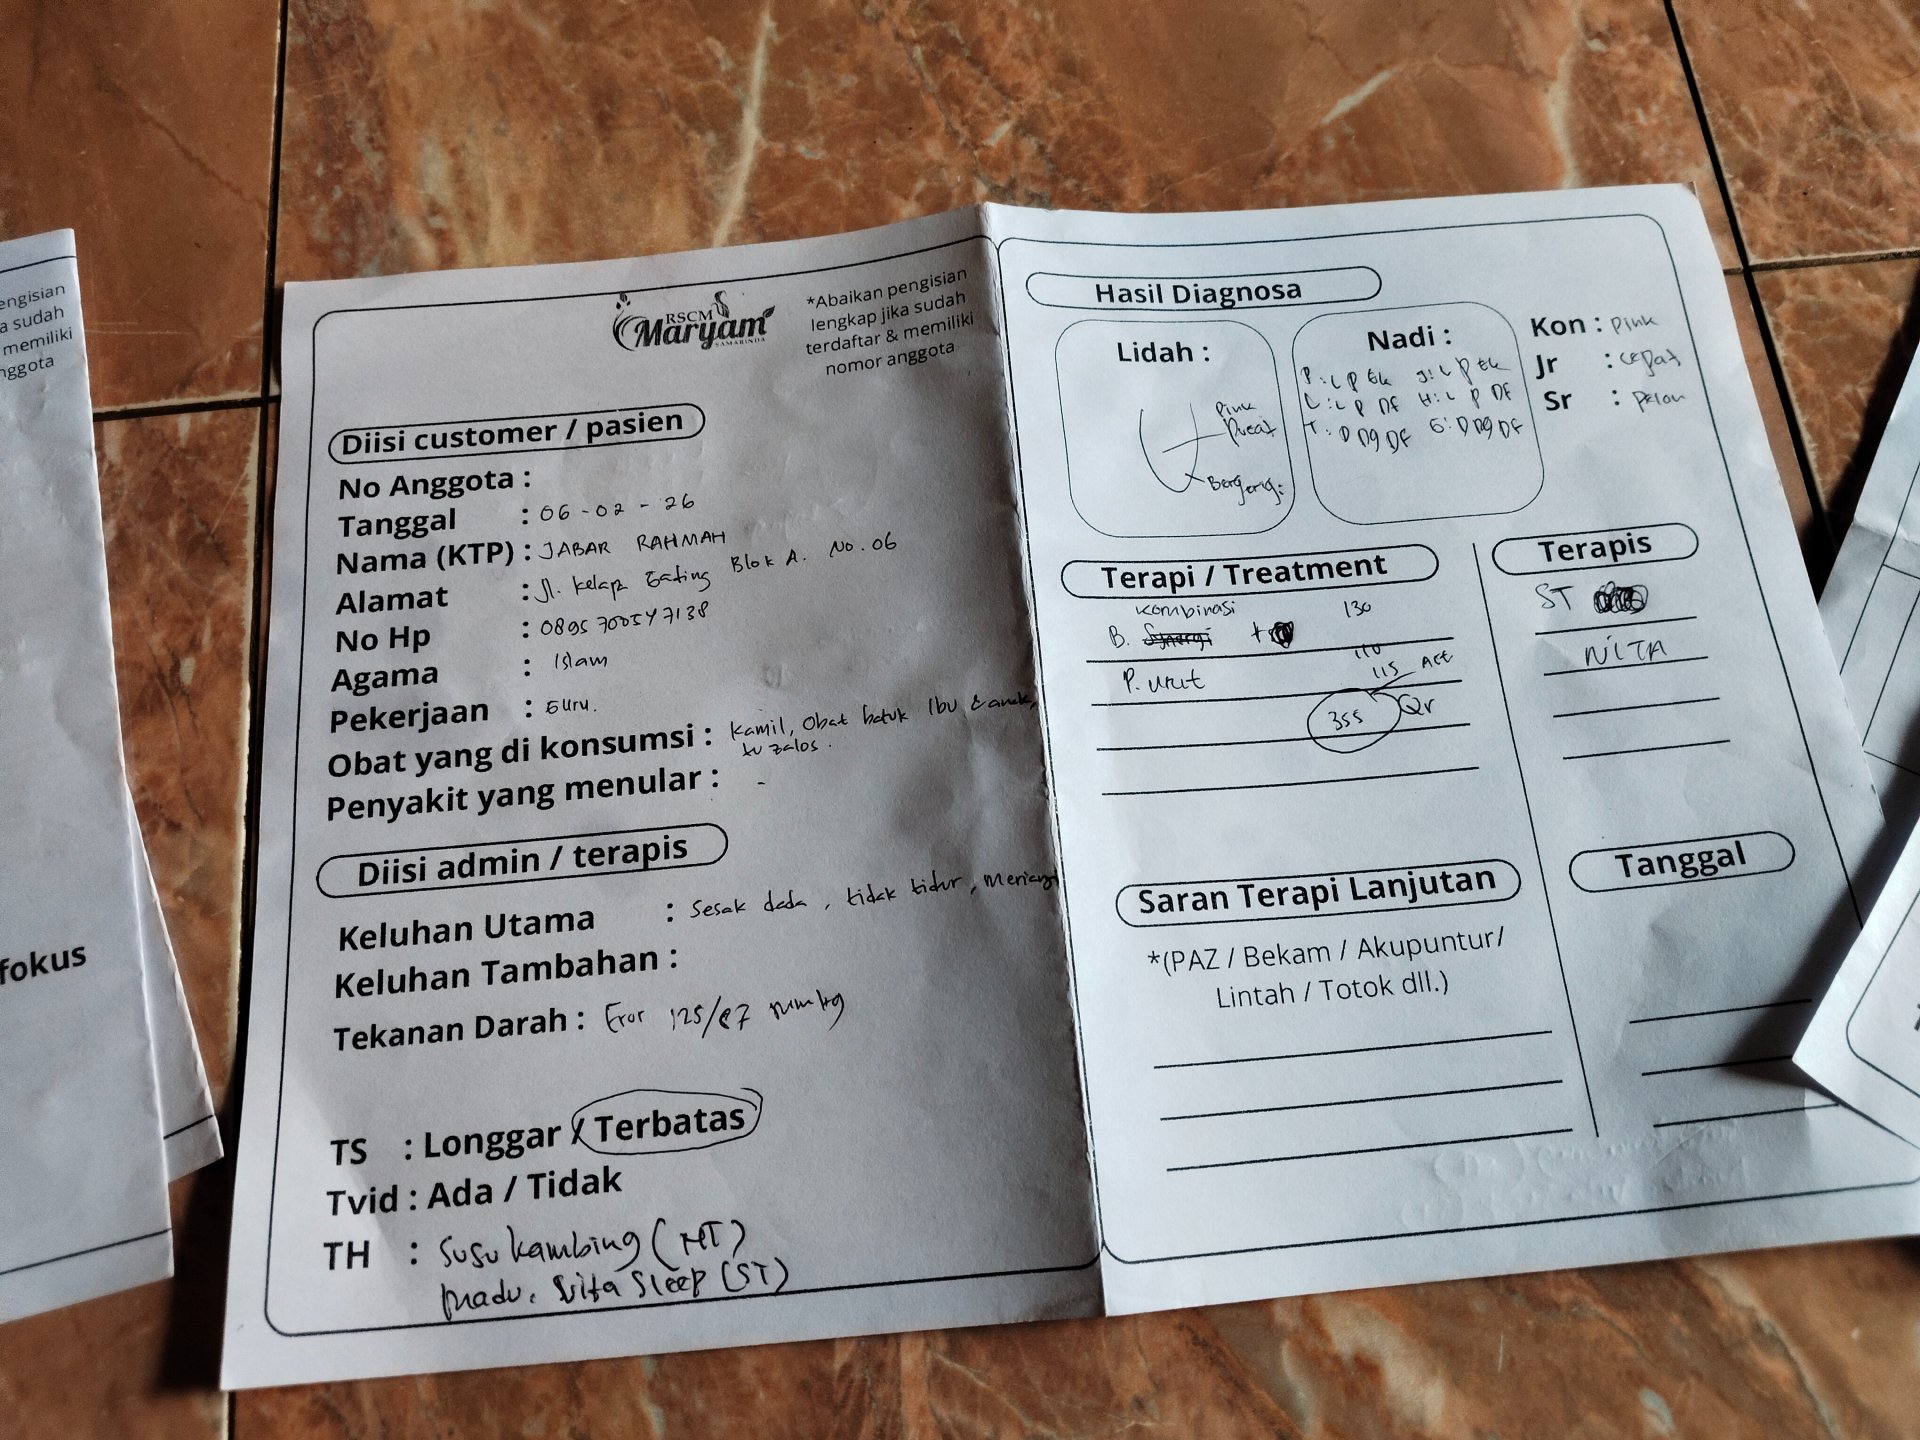 engisian
a sudah
memiliki
nggota
fokus
RSCM
Maryam
SAMARINDA
*Abaikan pengisian
lengkap jika sudah
terdaftar & memiliki
nomor anggota
Diisi customer / pasien
No Anggota :
Tanggal : 06-02-26
Nama (KTP) : JABAR RAHMAH
Alamat : Jl. kelapa Gading Blok A. No. 06
No Hp : 0895700547138
Agama : Islam
Pekerjaan : Guru.
Obat yang di konsumsi : Kamil, Obat batuk Ibu & anak,
tuzalos.
Penyakit yang menular : -
Diisi admin / terapis
Keluhan Utama : Sesak dada, tidak tidur, meriang
Keluhan Tambahan :
Tekanan Darah : Eror 125/87 mmHg
TS : Longgar / Terbatas
Tvid : Ada / Tidak
TH : Susu kambing (MT)
madu. Vita Sleep (ST)
Hasil Diagnosa
Lidah :
Pink
Pucat
Bergerigi
Nadi :
P : L P Ek J : L P Ek
L : L P DF H : L P DF
T : D Dg DF G : D Dg DF
Kon : Pink
Jr : cepat
Sr : Pelan
Terapi / Treatment
Kombinasi 130
B. Synergi +
110
P. urut 115 Act
355 Qr
Terapis
ST
NITA
Saran Terapi Lanjutan
*(PAZ / Bekam / Akupuntur/
Lintah / Totok dll.)
Tanggal